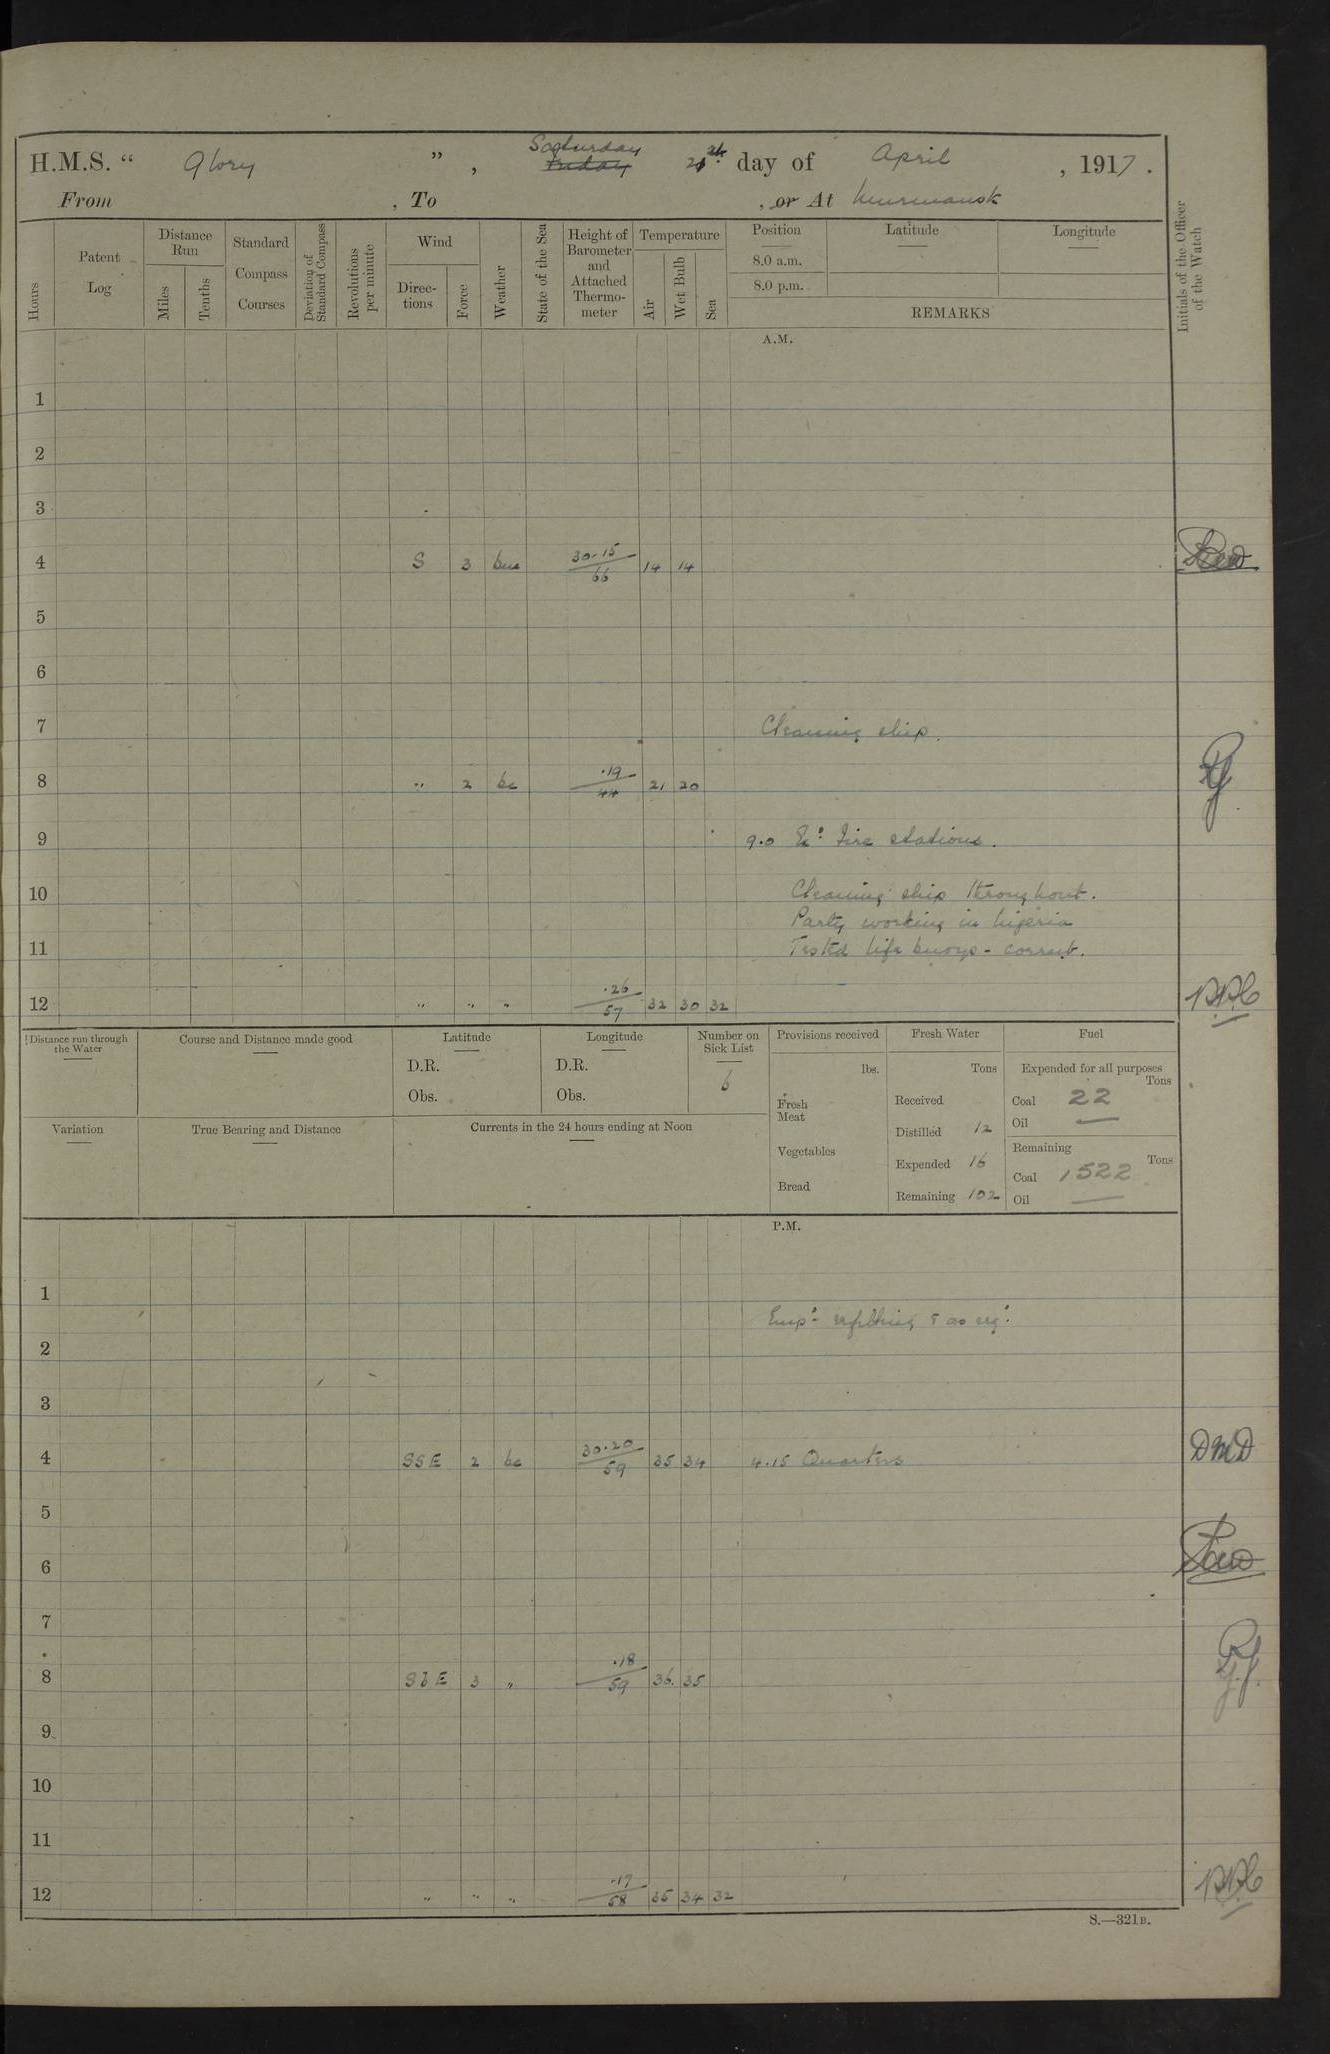 H.M.S. “ Glory ” , Saturday Friday 21st day of April , 1917 .
From , To , or At Murmansk
Hours
Patent Log
Distance Run
Miles
Tenths
Standard Compass Courses
Deviation of Standard Compass
Revolutions per minute
Wind
Direc-tions
Force
Weather
State of the Sea
Height of Barometer and Attached Thermo-meter
Temperature
Air
Wet Bulb
Sea
Position
8.0 a.m.
8.0 p.m.
Latitude
Longitude
REMARKS
Initials of the Officer of the Watch
A.M.
1
2
3
4 S 3 30.15 66 14 14
5
6
7 Cleaning ship.
8 " 2 bc .19 44 21 20
9 9.0 Ex: Fire stations.
10 Cleaning ship throughout.
Party working in Nigeria
11 Tested life buoys - correct.
12 " " " .26 57 32 30 32
Distance run through the Water
Course and Distance made good
Latitude
D.R.
Obs.
Longitude
D.R.
Obs.
Number on Sick List
6
Variation
True Bearing and Distance
Currents in the 24 hours ending at Noon
Provisions received
lbs.
Fresh Meat
Vegetables
Bread
Fresh Water
Tons
Received
Distilled 12
Expended 16
Remaining 102
Fuel
Expended for all purposes
Tons
Coal 22
Oil —
Remaining
Tons
Coal 1522
Oil —
P.M.
1
Emp: refitting & as req:
2
3
4 SSE 2 bc 30.20 59 35 34 4.15 Quarters DMD
5
6
7
8 SbE 3 " .18 59 36 35
9
10
11
12 " " " .17 58 35 34 32
S.—321B.